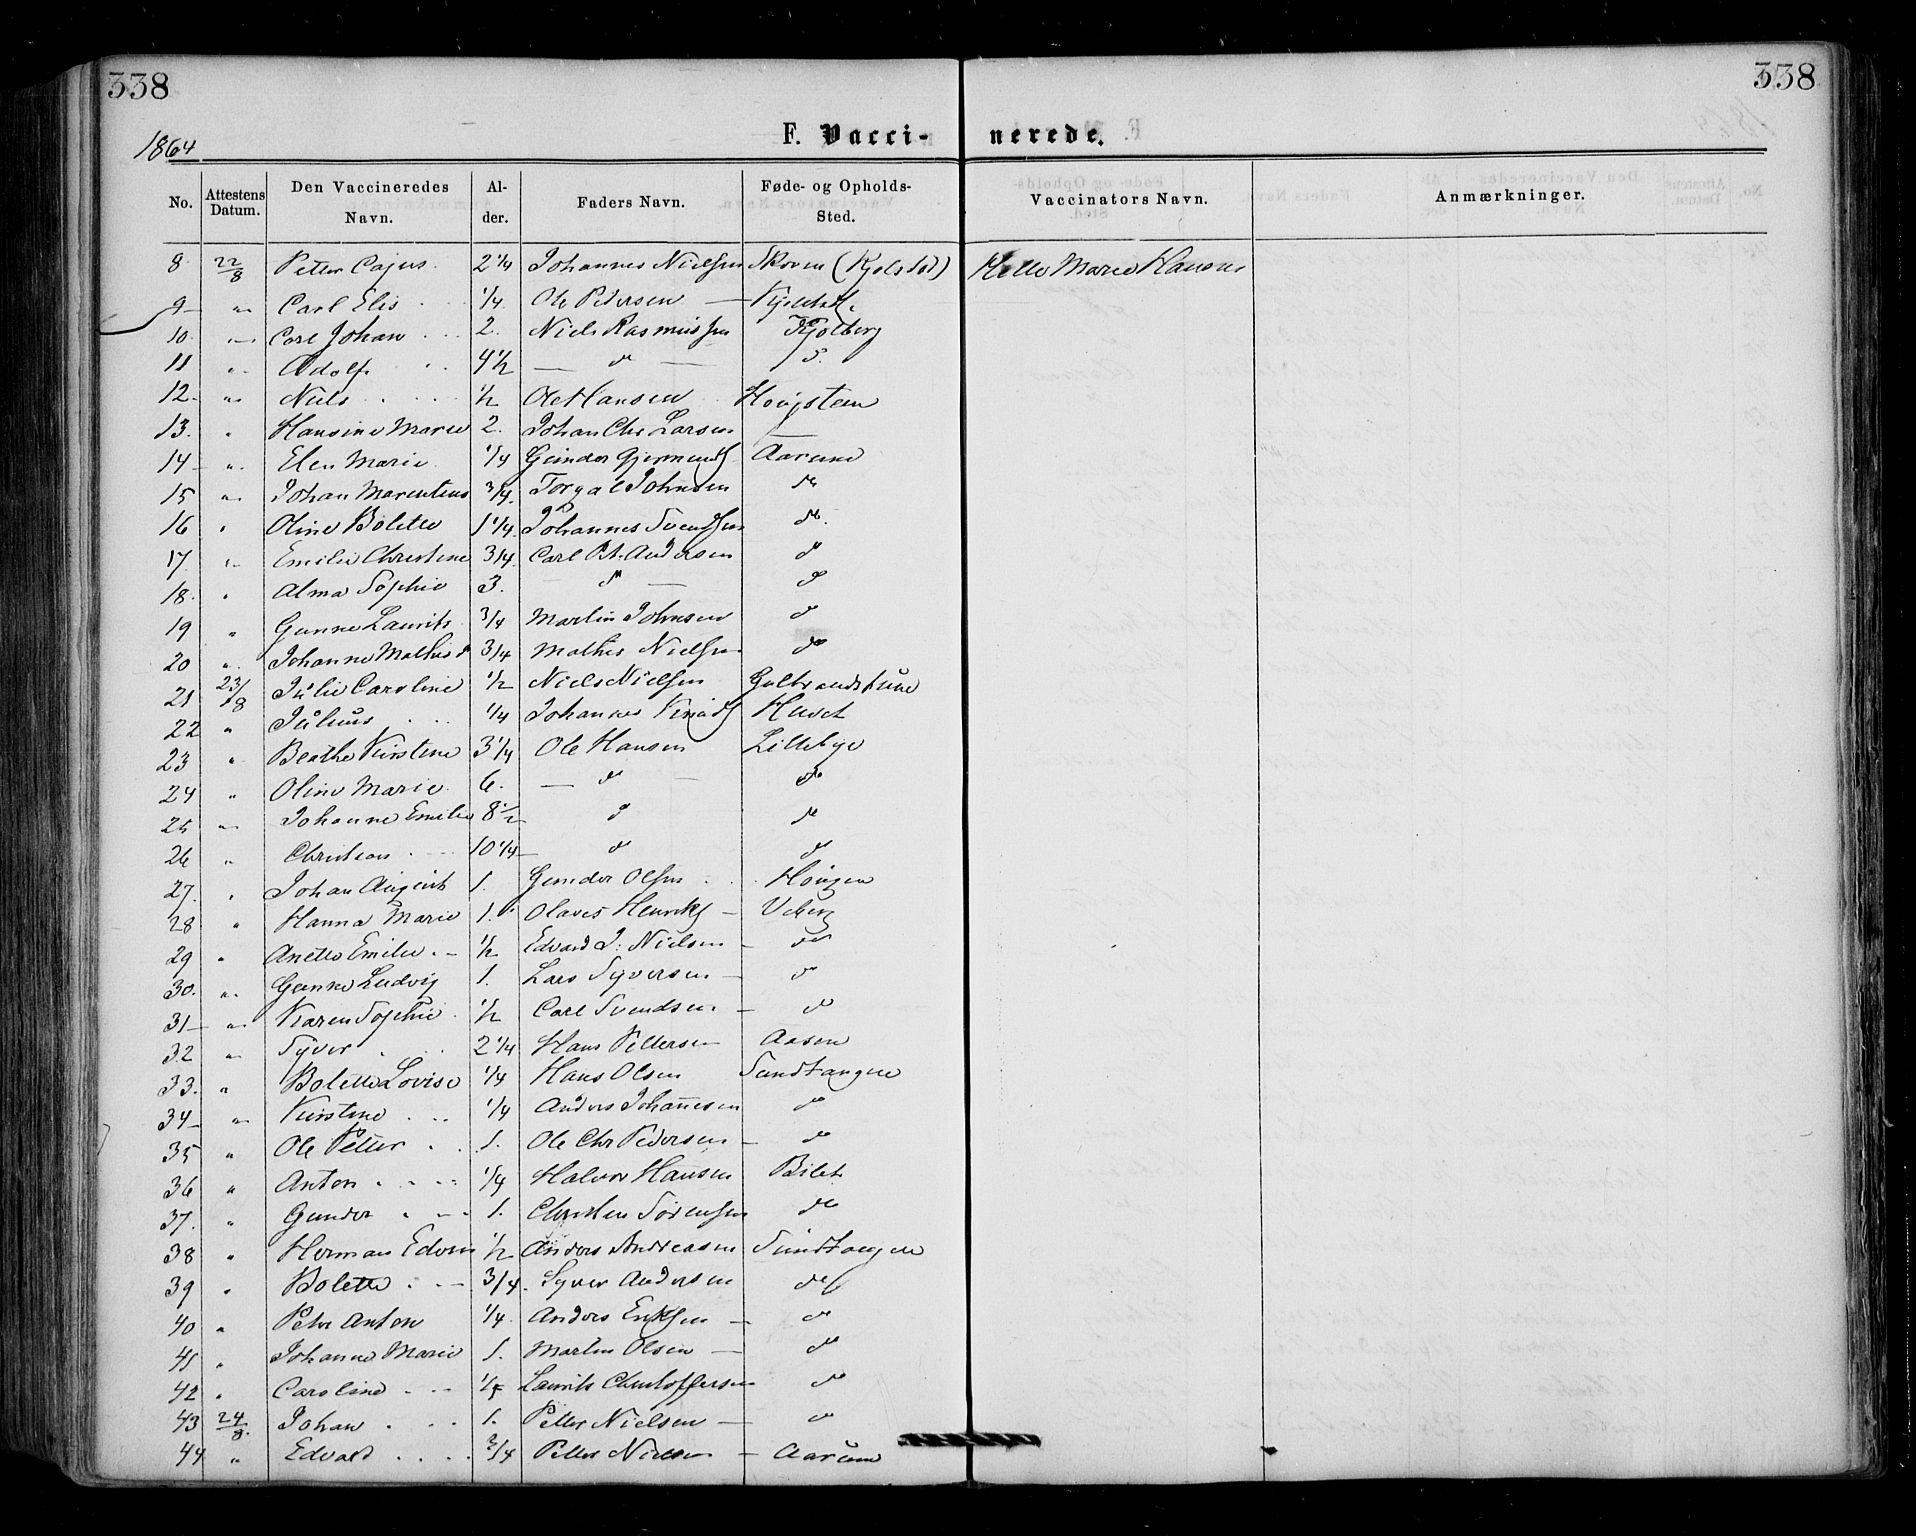 338 338
1864 F. Vacci- nerede.
No. Attestens Datum. Den Vaccineredes Navn. Al-der. Faders Navn. Føde- og Opholds-Sted. Vaccinators Navn. Anmærkninger.
8 22/8 Petter Cajus 2 1/4 Johannes Nielsen Skoven (Kjølstad) Mette Marie Hansen
9 " Carl Elis 1/4 Ole Pedersen
10 " Carl Johan 2. Niels Rasmussen Kjølberg
11 " Adolf 4 1/2 — d — d.
12 " Niels 1/2 Ole Hansen
13. " Hansine Marie 2. Johan Chr Larsen —
14 " Elen Marie 1/4 Gunder Aarum
15 " Johan Marentius 3/4 Torgal Johnsen do
16 " Oline Bolette 1 1/4 Johannes Svendsen do.
17 " Emilie Christine 3/4 Carl Pt. Andersen d
18. " Alma Sophie 3. — d — d
19 " Gunne Laurits 3/4 Martin Johnsen d
20 " Johanne Mathisd 3/4 Mathis Nielsen do
21 23/8 Julie Caroline 1/2 Niels Nielsen
22 " Julius 1/4 Johannes Knuds
23 " Beathe Kirstine 3 1/4 Ole Hansen Lillebye
24 " Oline Marie 6. — d — do
25 " Johanne Emilie 8 1/2 d do
26 " Christian 10 1/4 d d
27. " Johan August 1. Gunder Olsen Haugen
28 " Hanna Marie 1. Olaves Henriks — Viberg
29 " Anette Emilie 1/2 Edvard J. Nielsen — do
30. " Gunne Ludvig 1. Lars Syversen — d
31 " Karen Sophie 1/2 Carl Svendsen — d
32 " Syver 2 1/4 Hans Pettersen Aasen
33. " Bolette Lovise 1/4 Hans Olsen Sandtangen
34 " Kirstine 1/4 Anders Johannesen d
35 " Ole Petter 1. Ole Chr Pedersen — d
36 " Anton 1/4 Halvor Hansen Bilet
37. " Gunder 1. Christen Sørensen do
38 " Herman Edvin 1/2 Anders Andreasen Sandtangen
39 " Bolette 3/4. Syver Andersen do
40 " Petter Anton 1/4 Anders Eriksen — d
41 " Johanne Marie 1. Martin Olsen — d
42 " Caroline Laurits Christoffersen d
43 24/8. Johan 1. Petter Nielsen — d
44 " Edvard 3/4 Petter Nielsen — Aarum